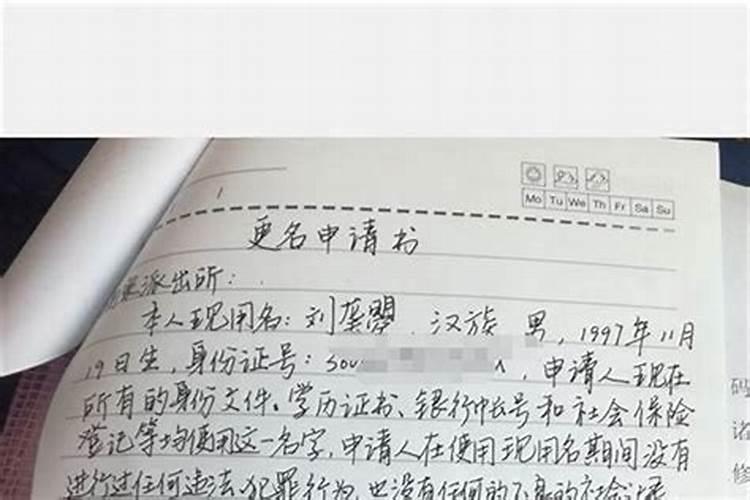 Mo Tu We Th Fr Sa Su
更名申请书
派出所：
本人现用名：刘龑曌，汉族，男，1997年11月
19日生，身份证号：500，申请人现在
所有的身份文件、学历证书、银行帐号和社会保险
登记等均使用这一名字，申请人在使用现用名期间没有
进行过任何违法、犯罪行为，也没有任何的不良的社会
码
诸
修